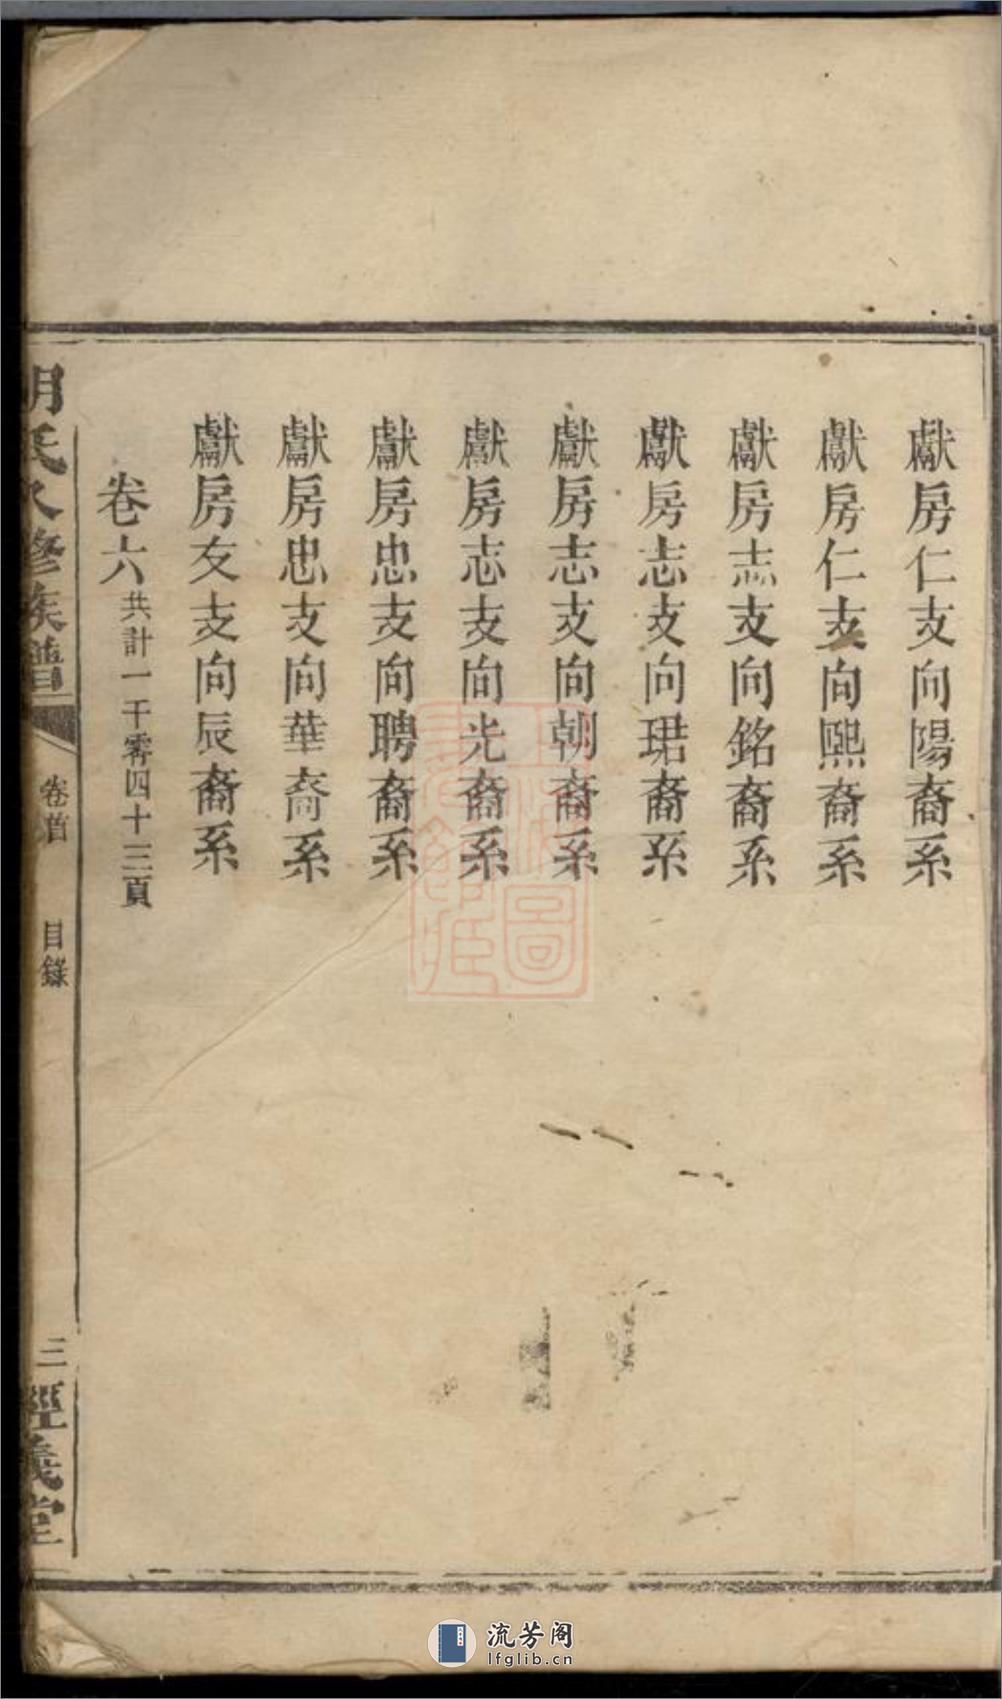 獻房仁支向陽裔系
獻房仁支向熙裔系
獻房志支向銘裔系
獻房志支向珺裔系
獻房志支向朝裔系
獻房志支向光裔系
獻房忠支向聘裔系
獻房忠支向華裔系
獻房友支向辰裔系
卷六共計一千零四十三頁
胡氏八修族譜 卷首 目錄 三 經義堂
流芳阁
lfglib.cn